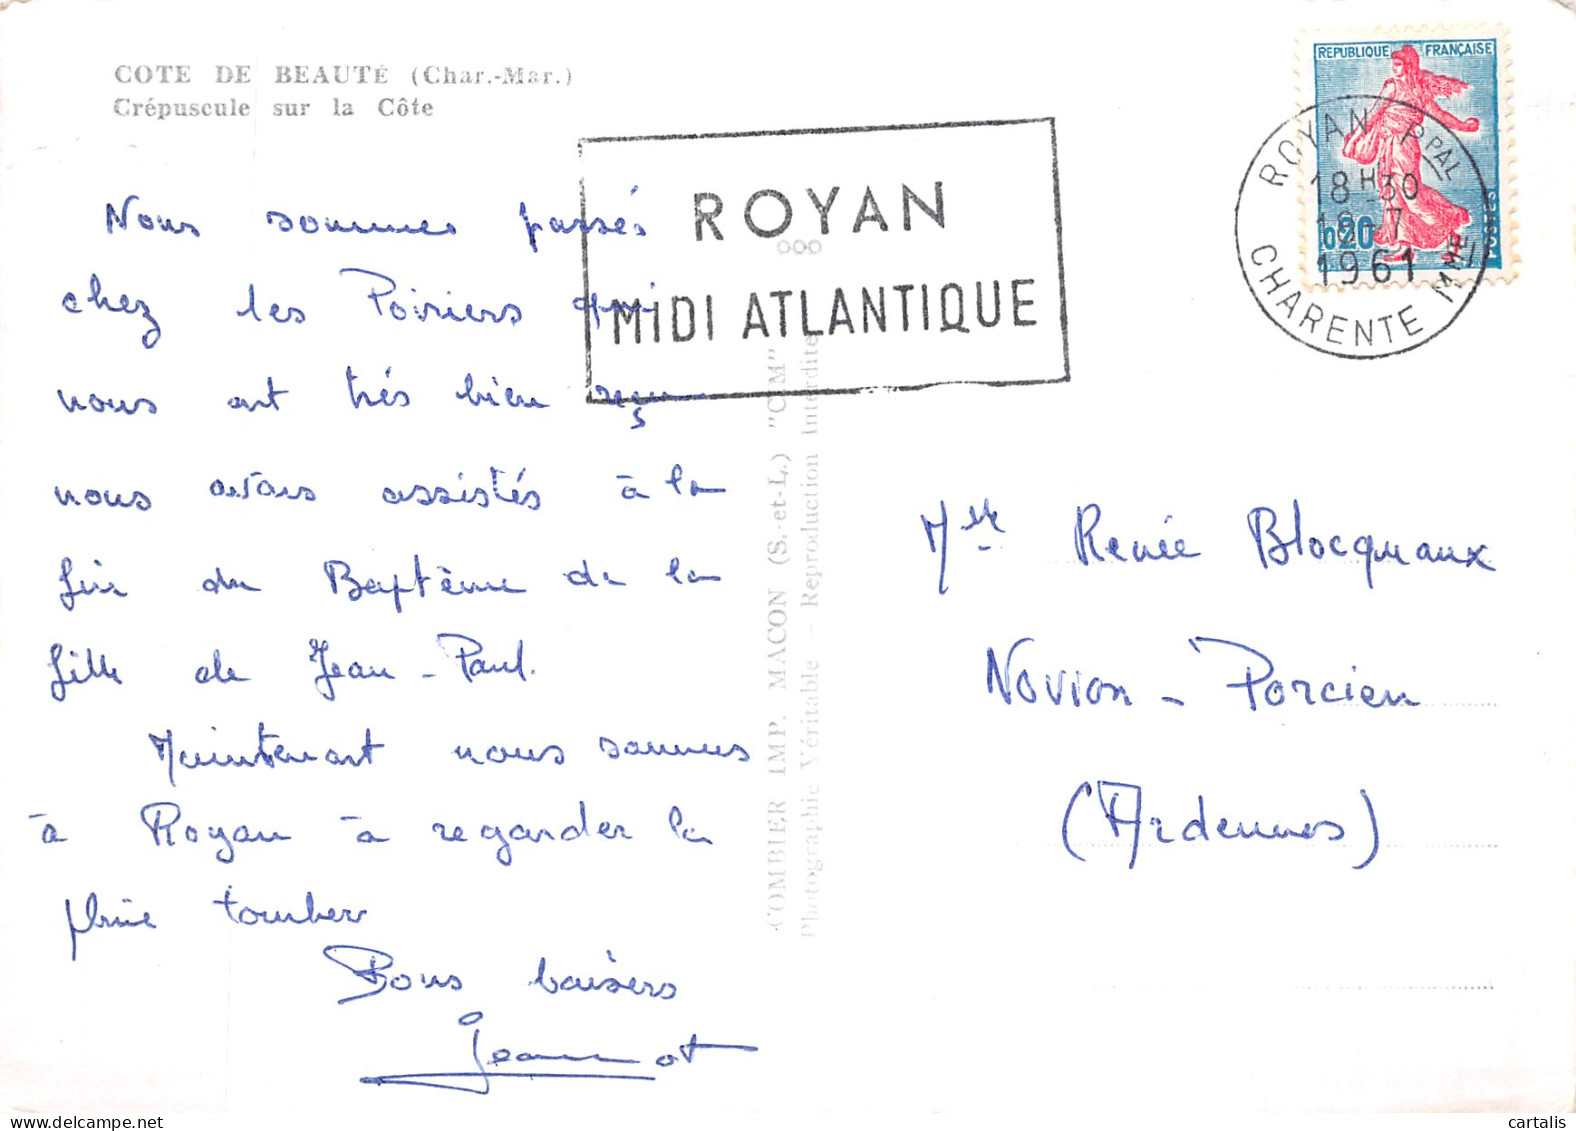 COTE DE BEAUTÉ (Char.-Mar.)
Crépuscule sur la Côte
Nous sommes passés
chez les Poiriers qui
nous ont trés bien reçu
nous avons assistés à la
fin du Baptême de la
fille de Jean-Paul.
Maintenant nous sommes
à Royan à regarder la
pluie tomber
Bons baisers
Jeannot
ROYAN
MIDI ATLANTIQUE
COMBIER IMP. MACON (S.-et-L.) "CIM"
Photographie Véritable - Reproduction Interdite
REPUBLIQUE FRANÇAISE
0,20
POSTES
ROYAN PPAL
18H30
19-7
1961
CHARENTE MME
Melle Renée Blocquaux
Novion-Porcien
(Ardennes)
cartalis
delcampe.net